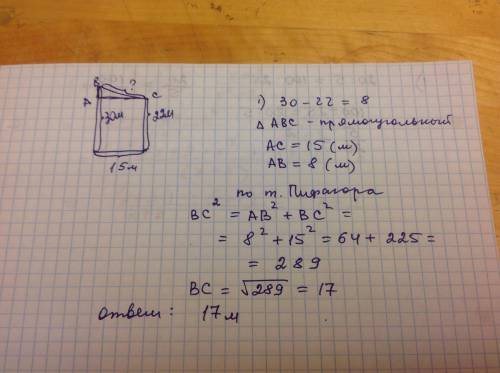 B ?
A C
30м 22м
15м
1) 30 - 22 = 8
△ ABC - прямоугольный
AC = 15 (м)
AB = 8 (м)
по т. Пифагора
BC² = AB² + BC² =
= 8² + 15² = 64 + 225 =
= 289
BC = √289 = 17
ответ: 17 м